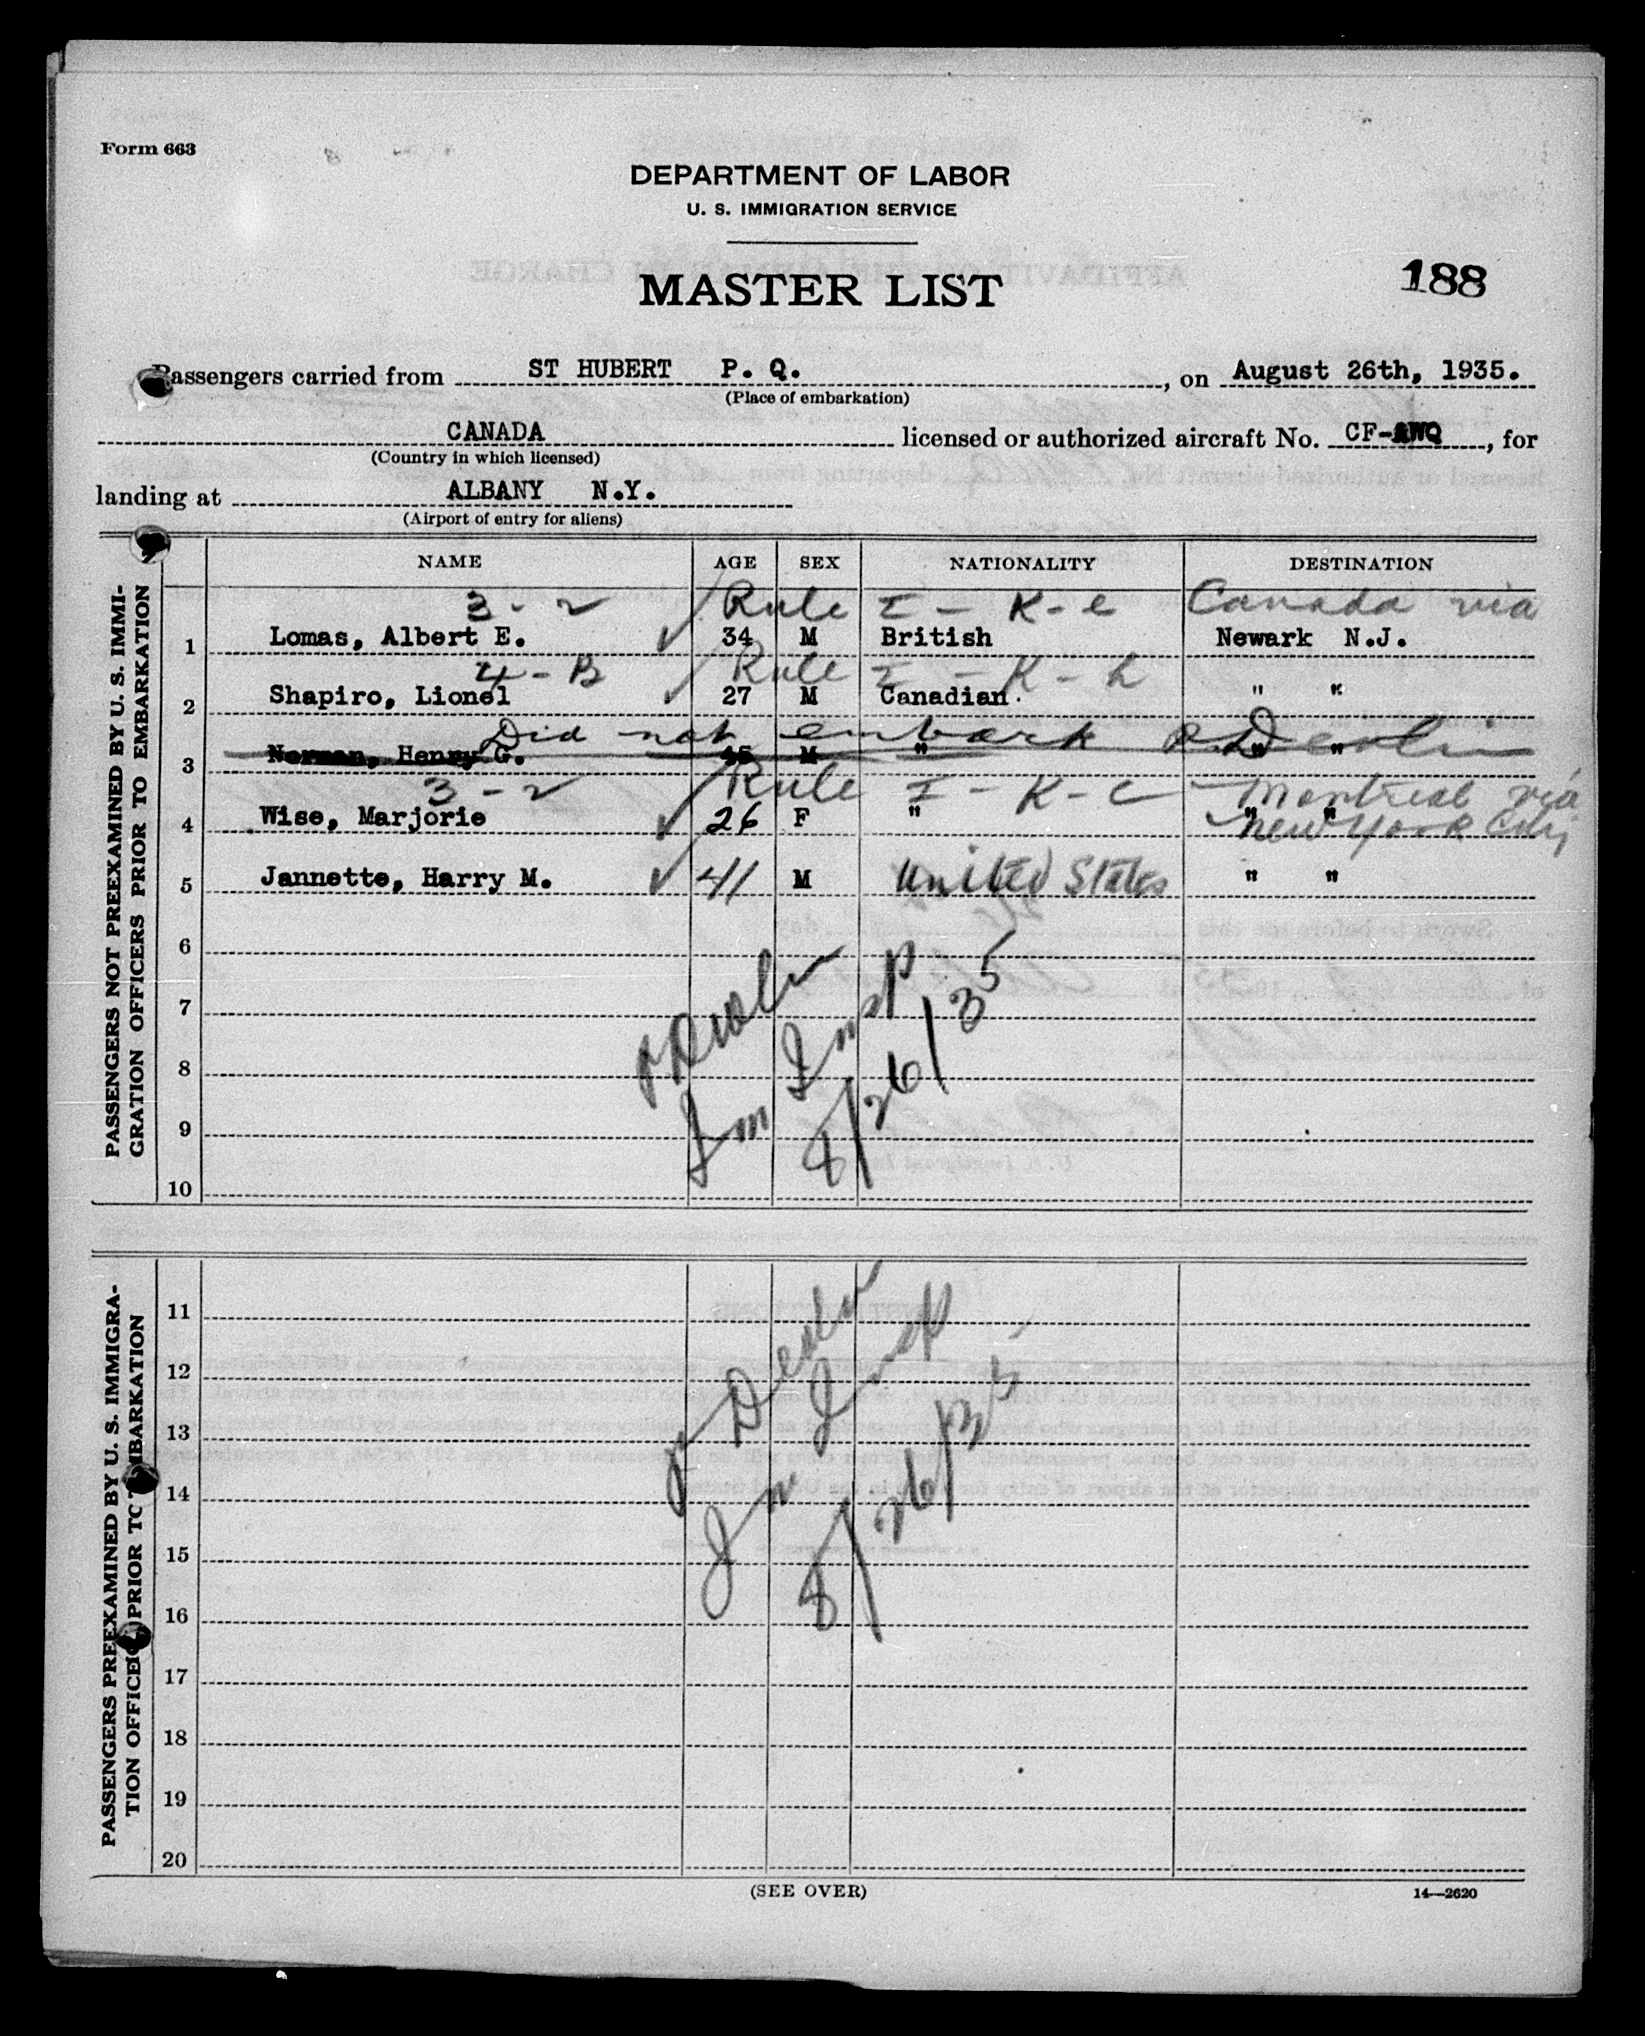 Form 663
DEPARTMENT OF LABOR
U. S. IMMIGRATION SERVICE
MASTER LIST
188
Passengers carried from ST HUBERT P. Q. , on August 26th, 1935.
(Place of embarkation)
CANADA licensed or authorized aircraft No. CF-AWQ , for
(Country in which licensed)
landing at ALBANY N.Y.
(Airport of entry for aliens)
PASSENGERS NOT PREEXAMINED BY U. S. IMMI-
GRATION OFFICERS PRIOR TO EMBARKATION
NAME AGE SEX NATIONALITY DESTINATION
3 - 2 Rule I - K - c Canada via
1 Lomas, Albert E. ✓ 34 M British Newark N.J.
4 - B Rule I - K - h
2 Shapiro, Lionel ✓ 27 M Canadian. " "
Did not embark Devlin
3 Norman, Henry G. 45 M " " "
3 - 2 Rule I - K - C Montreal via
4 Wise, Marjorie ✓ 26 F " " " New York City
5 Jannette, Harry M. ✓ 41 M United States " "
6
7
8
9
10
Devlin
Im Insp
8/26/35
PASSENGERS PREEXAMINED BY U. S. IMMIGRA-
TION OFFICE PRIOR TO EMBARKATION
11
12
13
14
15
16
17
18
19
20
Devlin
Im Insp
8/26/35
(SEE OVER)
14—2620